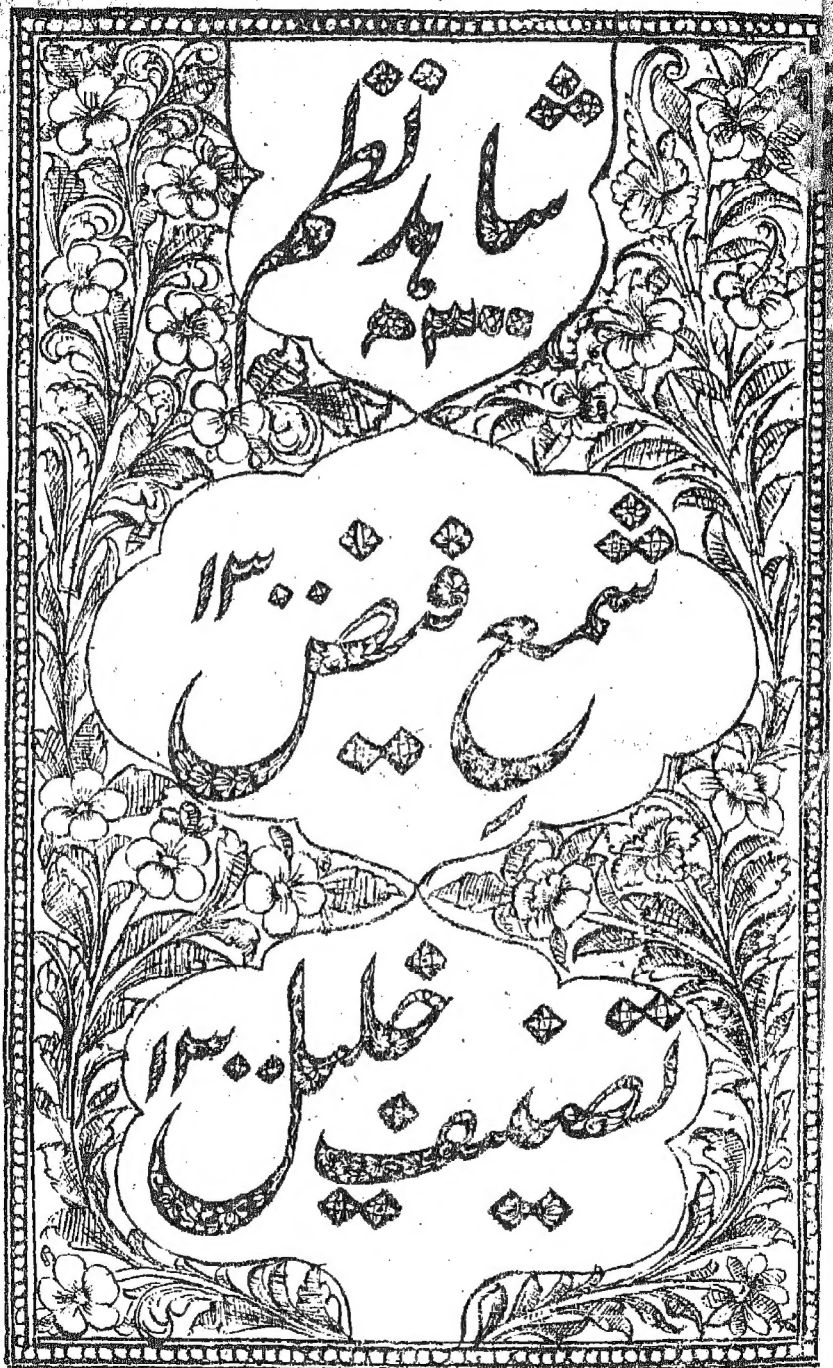 شاهد نظم
۱۳۰۰
شمع فیض ۱۳۰۰
تصنیف خلیل ۱۳۰۰